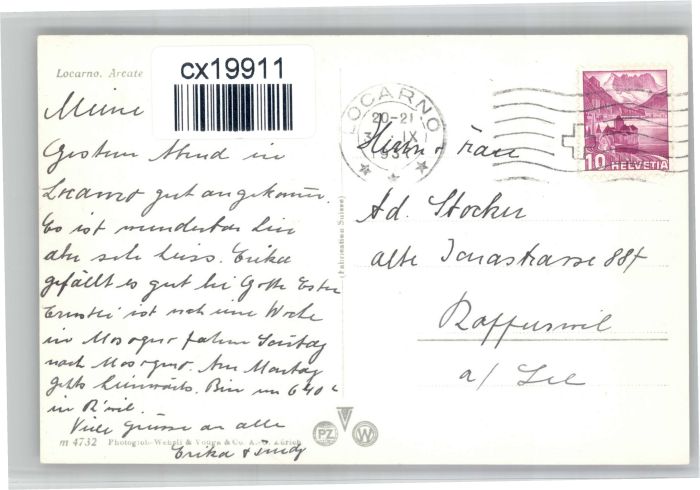 Locarno, Arcate
cx19911
Meine
Gestern Abend in
Locarno gut angekomm.
Es ist wunderbar hier
aber sehr heiss. Erika
gefällt es gut bei Gotte Ester
ist noch eine Woche
in Mosogno fahre Sontag
nach Mosogno. Am Montag
gehts heimwärts. Bin um 6 40
in R'wil.
Viele Grüsse an alle
Erika &
m 4732 Photoglob-Wehrli & Vouga & Co. A.-G. Zürich
(Fabrication Suisse)
PZ W
LOCARNO
20-21
IX
1934
10 HELVETIA
Herrn & Frau
Ad. Stocker
alte Jonastrasse 884
Rapperswil
a/ See